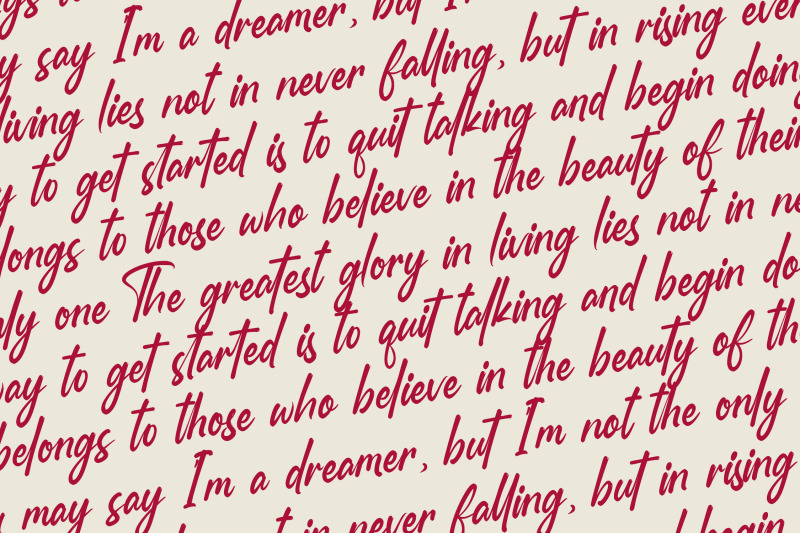 say I'm a dreamer, but I'm
living lies not in never falling, but in rising ever
to get started is to quit talking and begin doing
to those who believe in the beauty of their
one The greatest glory in living lies not in
to get started is to quit talking and begin
belongs to those who believe in the beauty of
may say I'm a dreamer, but I'm not the only
in never falling, but in rising
begin